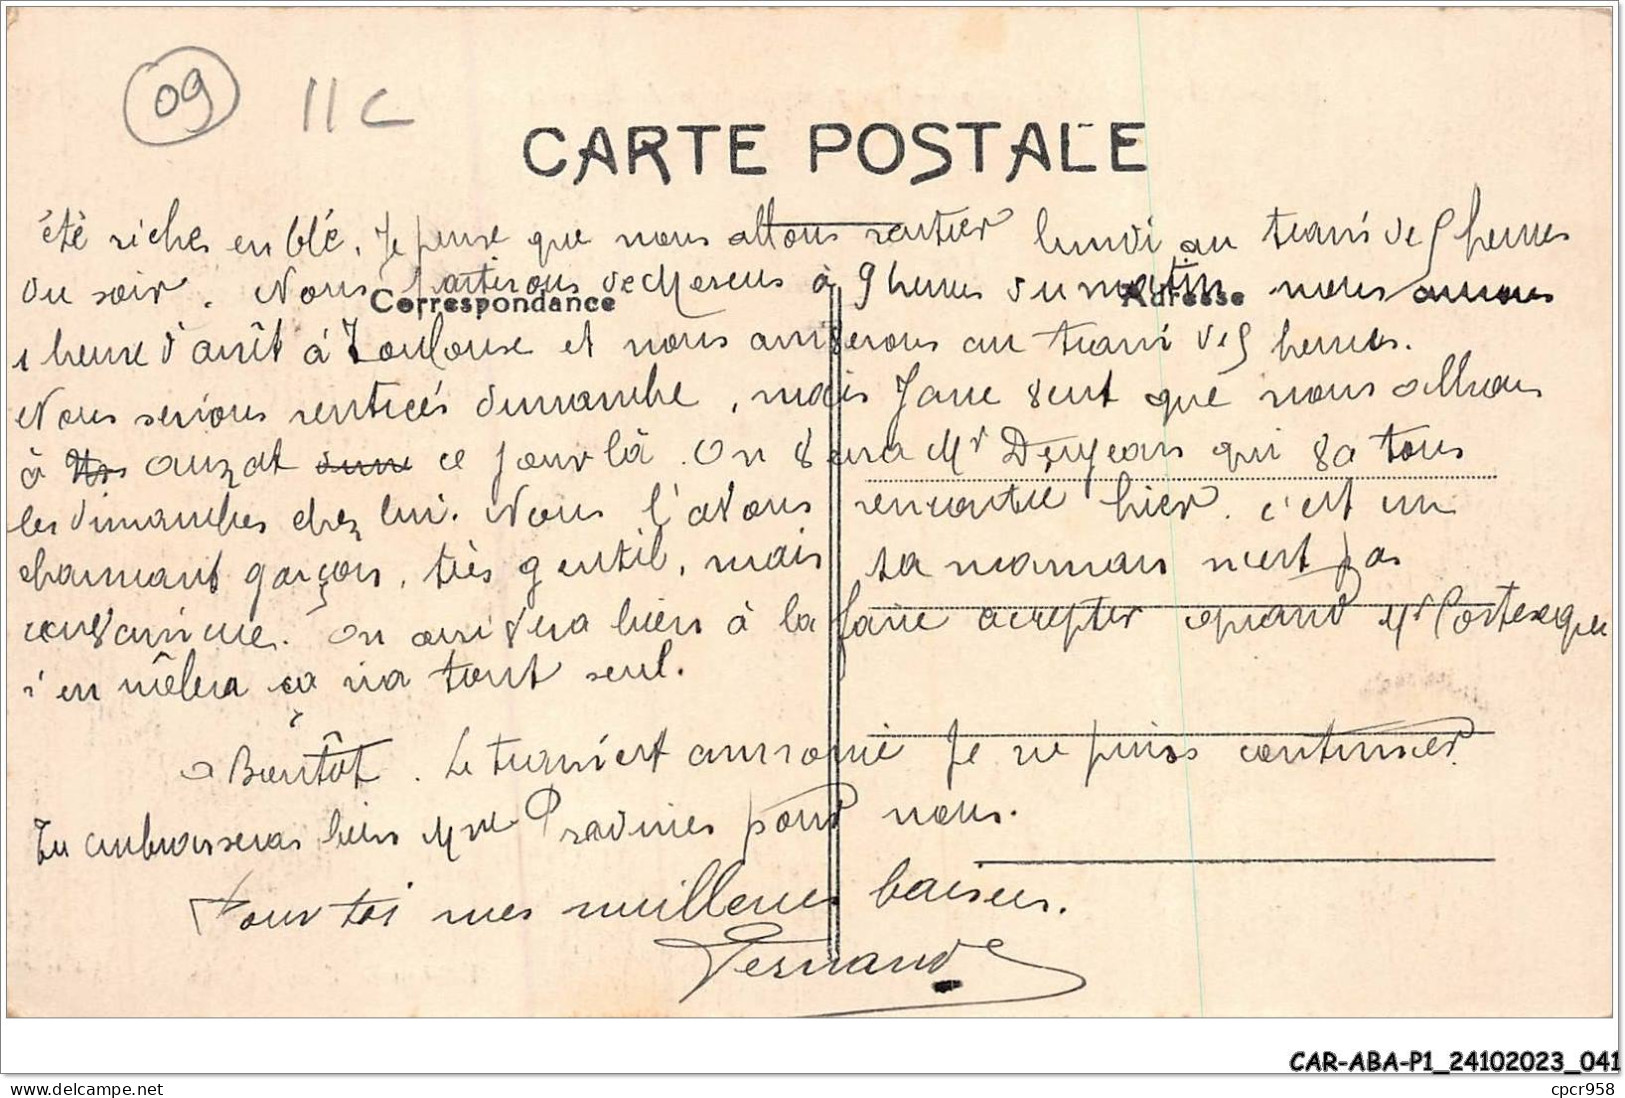 09 11C
CARTE POSTALE
été riche en blé. Je pense que nous allons rentrer lundi au train de 5 heures
du soir. Nous partirons de Mereus à 9 heures du matin nous aurons
Correspondance Adresse
1 heure d'arrêt à Toulouse et nous arriverons au train de 5 heures.
Nous serions rentrés dimanche, mais Jane veut que nous allions
à auzat ce jour là. On verra Mr Dejean qui va tous
les dimanches chez lui. Nous l'avons rencontré hier. c'est un
charmant garçon, très gentil, mais sa maman n'est pas
convaincue. On arrivera bien à la faire accepter quand Mr
s'en mêlera ça ira tout seul.
a Bientôt. Le train est annoncé je ne puis continuer.
Tu embrasseras bien Mme Pradines pour nous.
Pour toi mes meilleurs baisers.
Fernand
CAR-ABA-P1_24102023_041
www.delcampe.net cpcr958